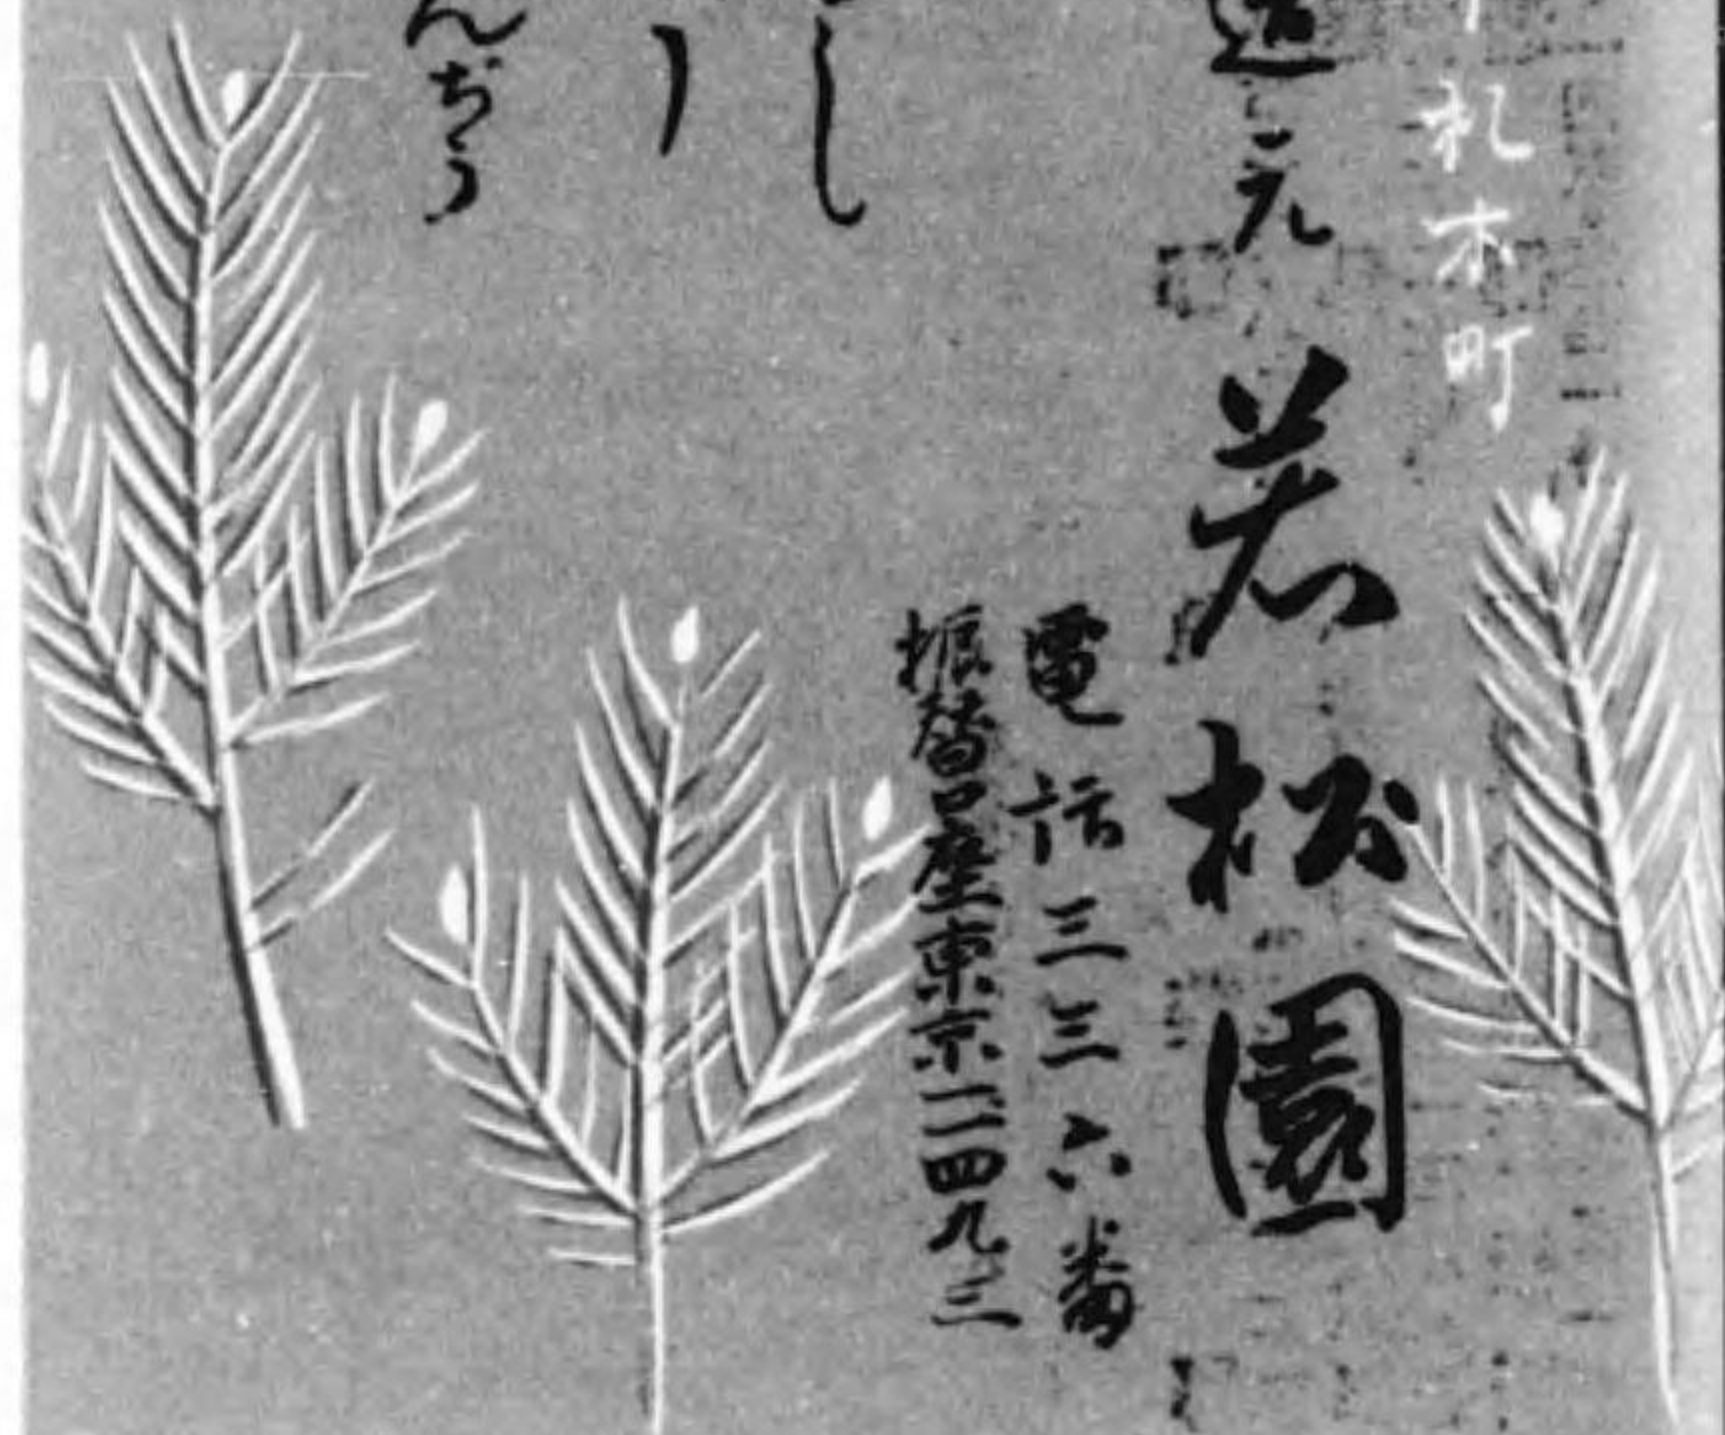 札木町
造元 若松園
電話三三六番
振替口座東京二四九三
し
ー
んぢう